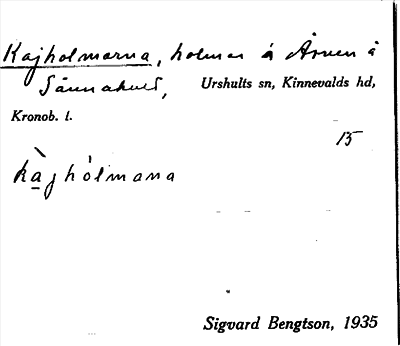 Kajholmarna, holmar å Åsnen å
Sånnahult, Urshults sn, Kinnevalds hd,
Kronob. l.
15
kàjhólmana
Sigvard Bengtson, 1935